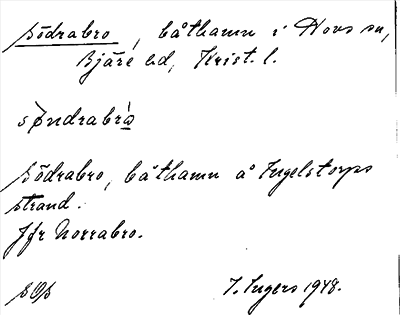 Södrabro, båthamn i Hovs sn,
Bjäre hd, Krist. l.
Södrabro, båthamn å Ingelstorps
strand.
Jfr Norrabro.
I. Ingers 1948.